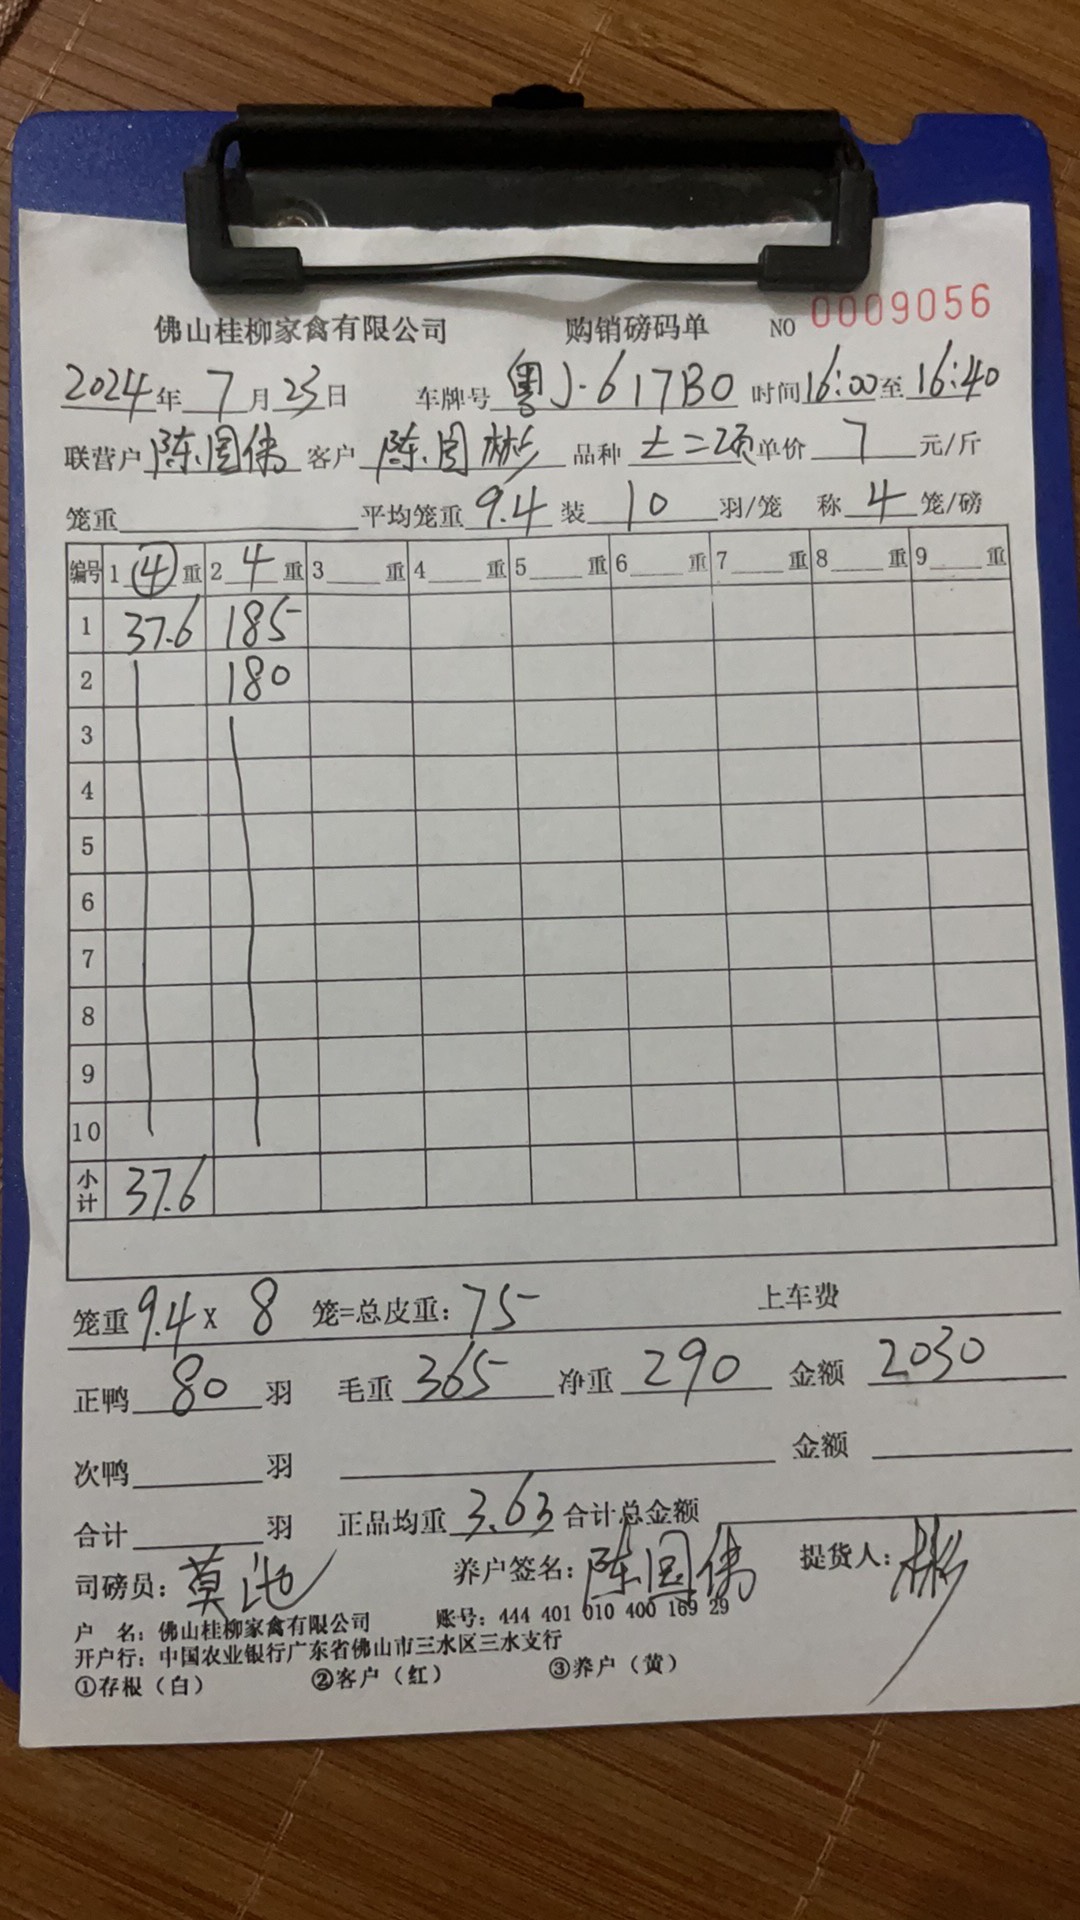 佛山桂柳家禽有限公司 购销磅码单 NO 0009056
2024年 7月 23日 车牌号 粤J·617B0 时间 16:00 至 16:40
联营户 陈国伟 客户 陈国彬 品种 土二项 单价 7 元/斤
笼重 平均笼重 9.4 装 10 羽/笼 称 4 笼/磅
编号 1 4 重 2 4 重 3 重 4 重 5 重 6 重 7 重 8 重 9 重
1 37.6 185
2 180
3
4
5
6
7
8
9
10
小计 37.6
笼重 9.4 x 8 笼=总皮重: 75 上车费
正鸭 80 羽 毛重 365 净重 290 金额 2030
次鸭 羽 金额
合计 羽 正品均重 3.63 合计总金额
司磅员: 莫 养户签名: 陈国伟 提货人: 彬
户 名: 佛山桂柳家禽有限公司 账号: 444 401 010 400 169 29
开户行: 中国农业银行广东省佛山市三水区三水支行
①存根（白） ②客户（红） ③养户（黄）